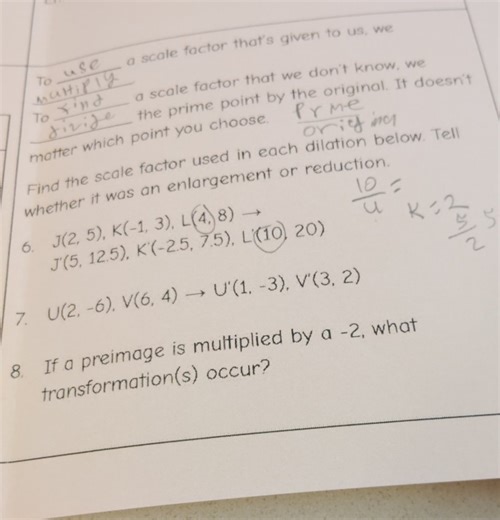 To use a scale factor that's given to us, we
multiply
To find a scale factor that we don't know, we
divide the prime point by the original. It doesn't
matter which point you choose.
Prme
Find the scale factor used in each dilation below. Tell
whether it was an enlargement or reduction.
10
4 =
K = 2.5
5
2
6. J(2, 5), K(-1, 3), L(4, 8) →
J'(5, 12.5), K'(-2.5, 7.5), L'(10, 20)
7. U(2, -6), V(6, 4) → U'(1, -3), V'(3, 2)
8. If a preimage is multiplied by a -2, what
transformation(s) occur?